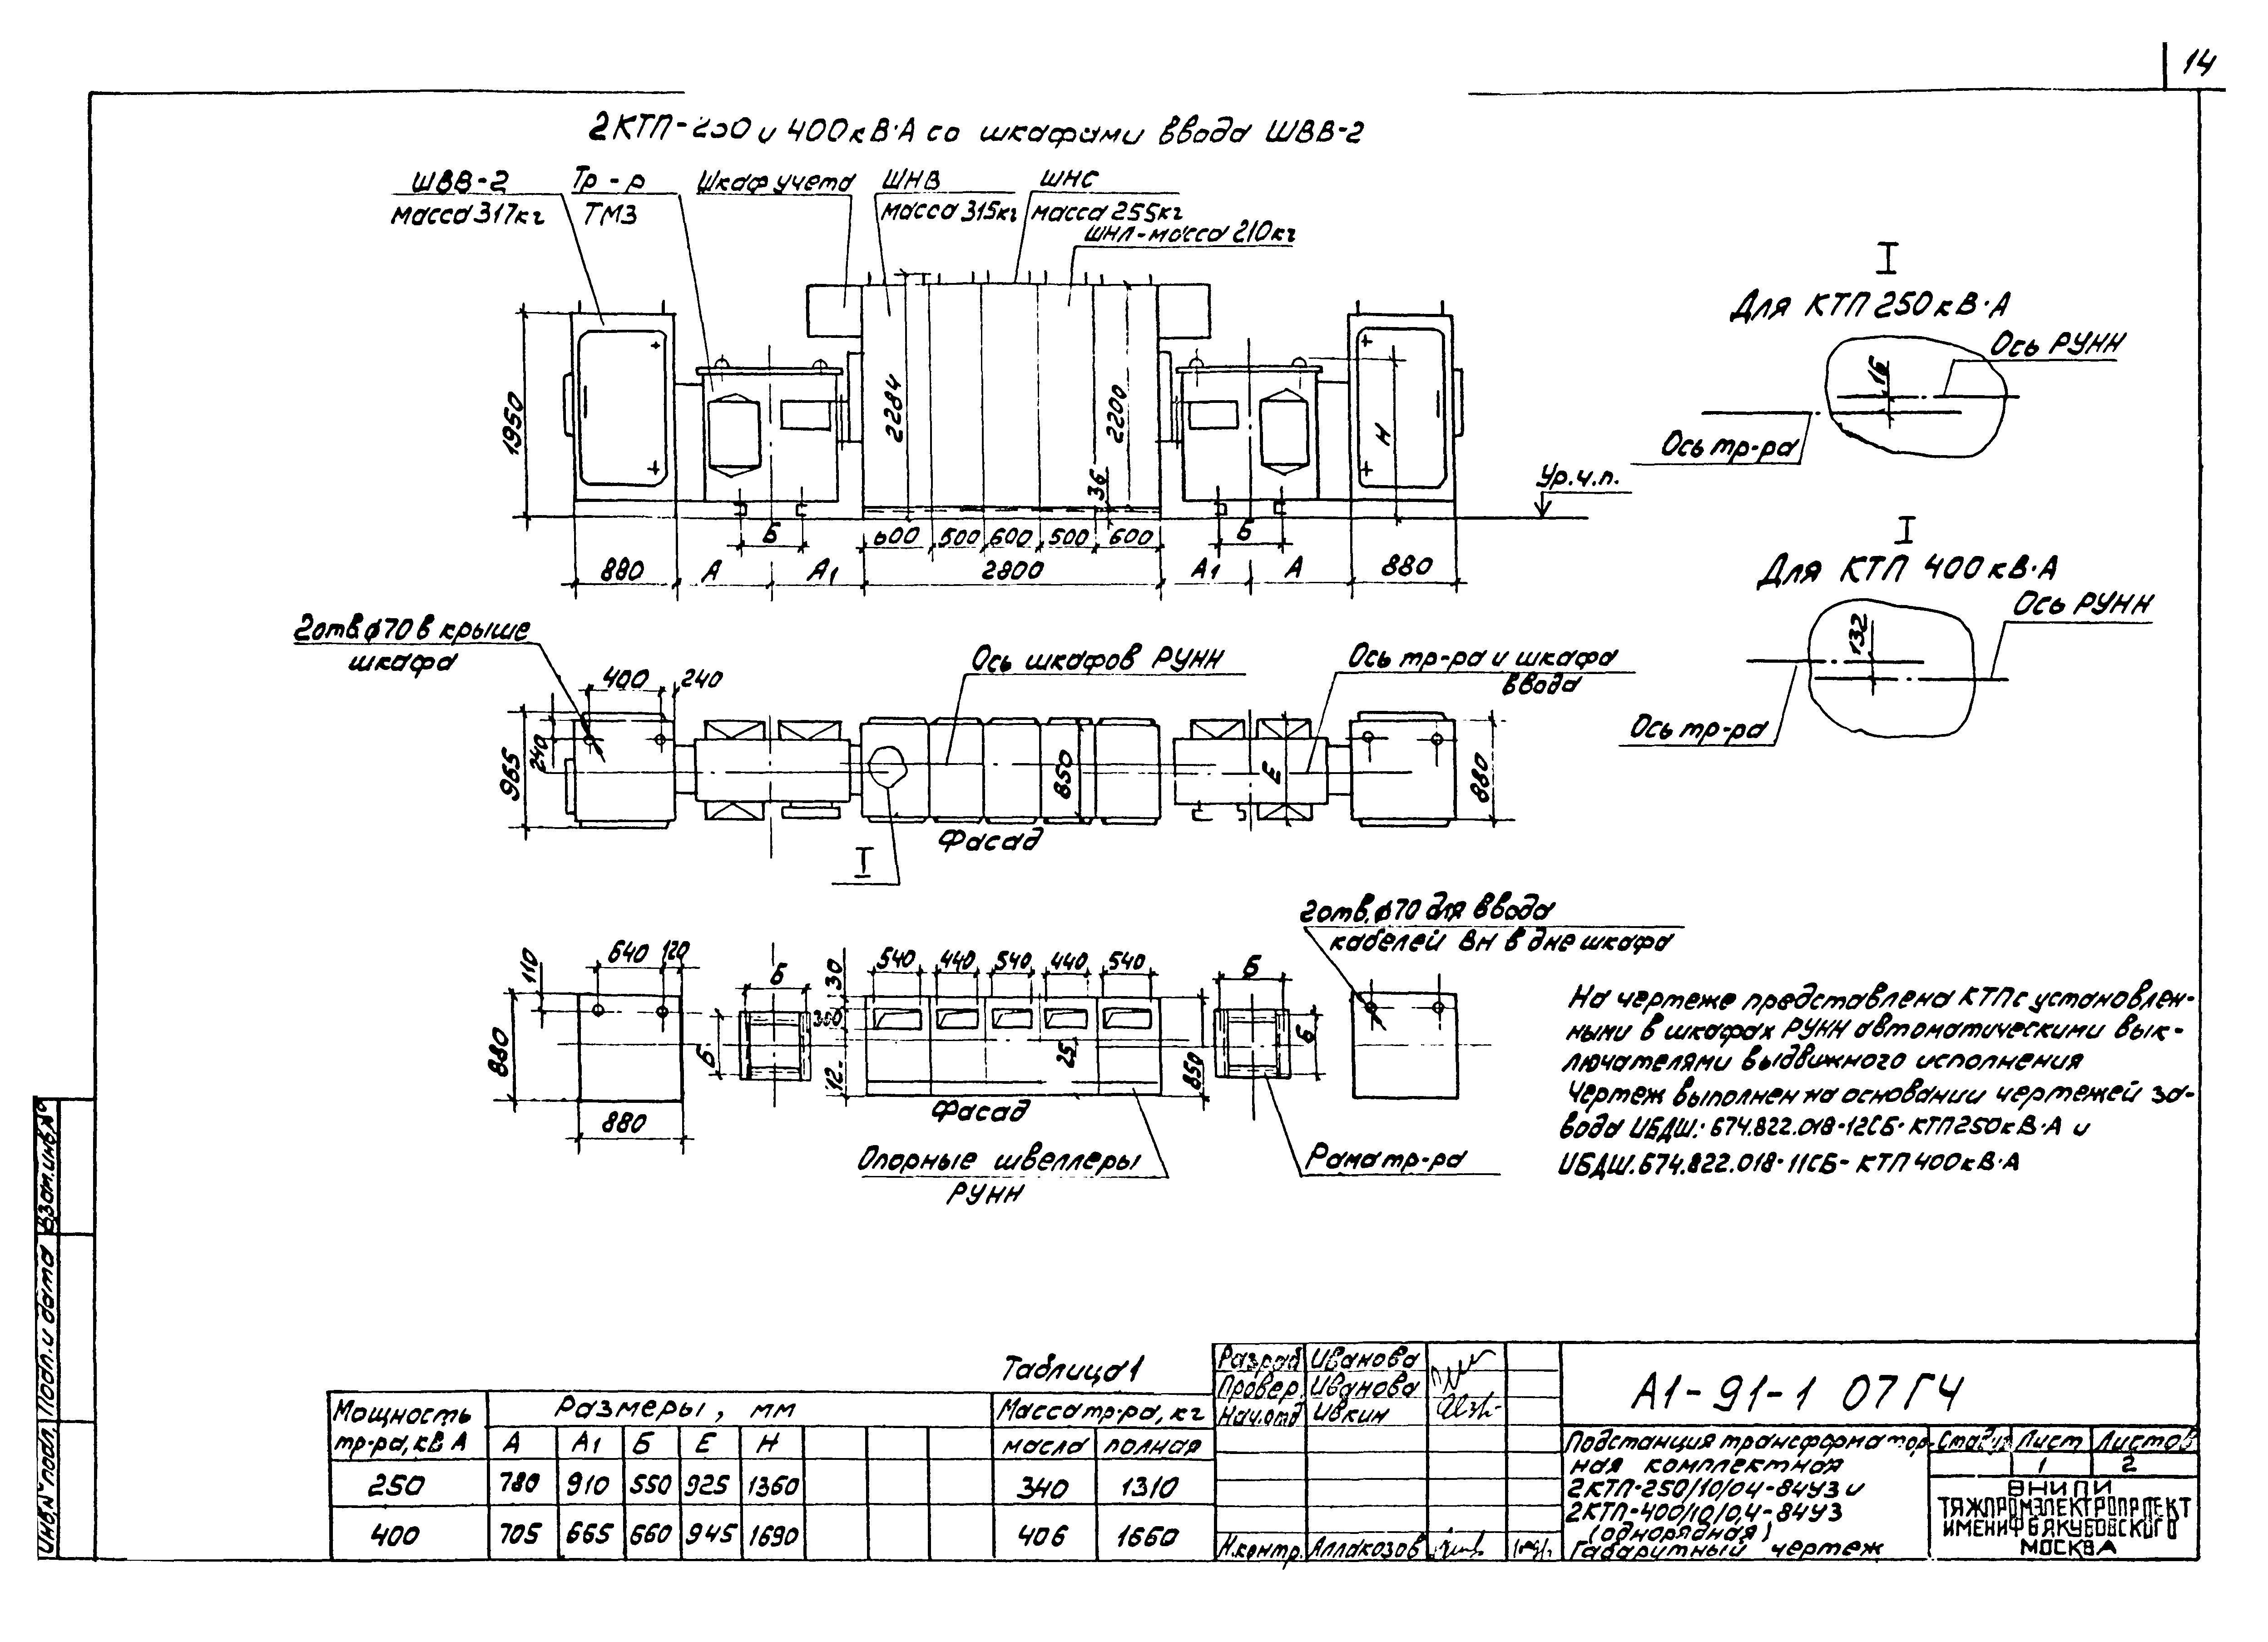 14
2КТП-250 и 400кВ·А со шкафами ввода ШВВ-2
ШВВ-2
масса 317кг
Тр-р
ТМЗ
Шкаф учета
ШНВ
масса 315кг
ШНС
масса 255кг
ШНЛ-масса 210кг
1950
2284
2200
36
Н
Ур.ч.п.
Б
600
500
600
500
600
Б
880
А
А1
2800
А1
А
880
I
Для КТП 250кВ·А
Ось РУНН
16
Ось тр-ра
I
Для КТП 400кВ·А
Ось РУНН
132
Ось тр-ра
2отв.ø70 в крыше
шкафа
400
240
Ось шкафов РУНН
Ось тр-ра и шкафа
ввода
965
240
850
Е
880
Фасад
I
2отв.ø70 для ввода
кабелей ВН в дне шкафа
110
640
120
Б
30
540
440
540
440
540
Б
880
Б
25
850
Б
Фасад
880
Опорные швеллеры
РУНН
Рама тр-ра
На чертеже представлена КТП с установлен-
ными в шкафах РУНН автоматическими вык-
лючателями выдвижного исполнения
Чертеж выполнен на основании чертежей за-
вода ИБДШ.674.822.018-12СБ-КТП250кВ·А и
ИБДШ.674.822.018-11СБ-КТП400кВ·А
Взам.инв.№
Подп. и дата
Инв.№ подл.
Таблица 1
Мощность
тр-ра, кВ А
Размеры, мм
Масса тр-ра, кг
А А1 Б Е Н масла полная
250 780 910 550 925 1360 340 1310
400 705 665 660 945 1690 406 1660
Разраб Иванова
Провер. Иванова
Нач.отд Ивкин
Н.контр. Аллакозов
А1-91-1 07ГЧ
Подстанция трансформатор-
ная комплектная
2КТП-250/10/04-84У3 и
2КТП-400/10/0,4-84У3
(однорядная)
Габаритный чертеж
Стадия Лист Листов
1 2
ВНИПИ
ТЯЖПРОМЭЛЕКТРОПРОЕКТ
ИМЕНИ Ф Б ЯКУБОВСКОГО
МОСКВА